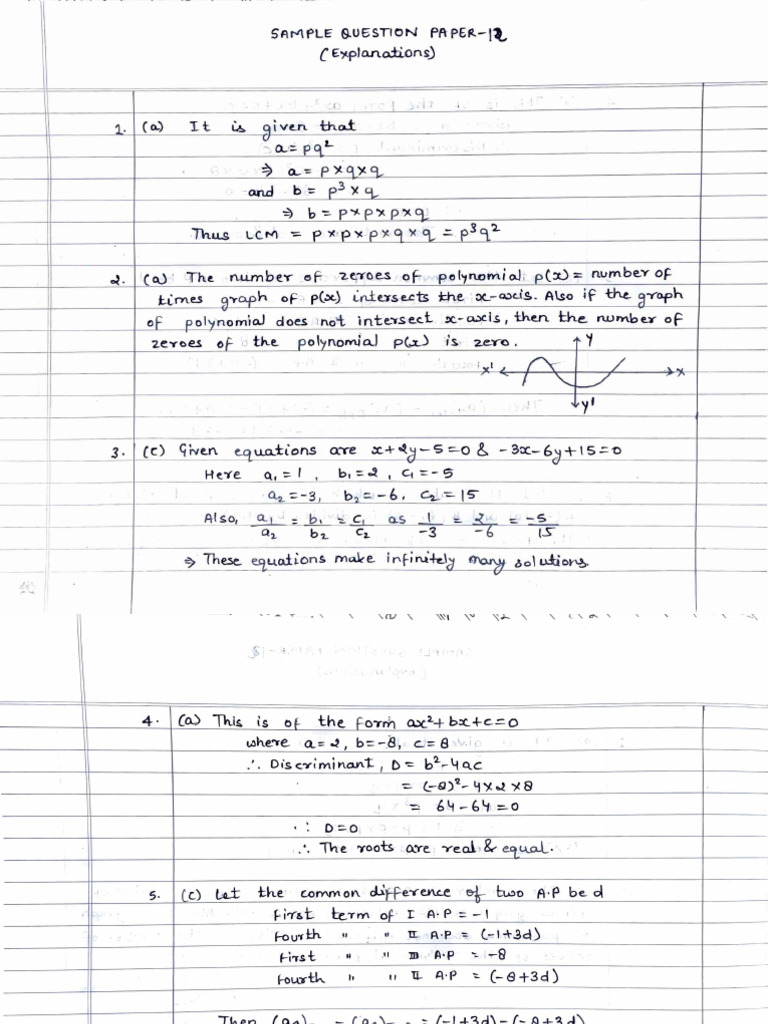 SAMPLE QUESTION PAPER-12
(Explanations)
1. (a) It is given that
a = pq²
⇒ a = p×q×q
and b = p³ × q
⇒ b = p×p×p×q
Thus LCM = p×p×p×q×q = p³q²
2. (a) The number of zeroes of polynomial p(x) = number of
times graph of p(x) intersects the x-axis. Also if the graph
of polynomial does not intersect x-axis, then the number of
zeroes of the polynomial p(x) is zero.
Y
X' X
Y'
3. (c) Given equations are x+2y-5=0 & -3x-6y+15=0
Here a₁=1, b₁=2, c₁=-5
a₂=-3, b₂=-6, c₂=15
Also, a₁/a₂ = b₁/b₂ = c₁/c₂ as 1/-3 = 2/-6 = -5/15
⇒ These equations make infinitely many solutions.
4. (a) This is of the form ax²+bx+c=0
where a=2, b=-8, c=8
∴ Discriminant, D = b²-4ac
= (-8)²-4×2×8
= 64-64=0
∵ D=0
∴ The roots are real & equal.
5. (c) Let the common difference of two A.P be d
First term of I A.P = -1
Fourth " " II A.P = (-1+3d)
First " " III A.P = -8
Fourth " " II A.P = (-8+3d)